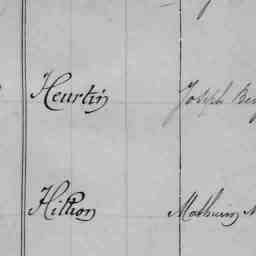 Heurtin Joseph
Hillion Mathurin